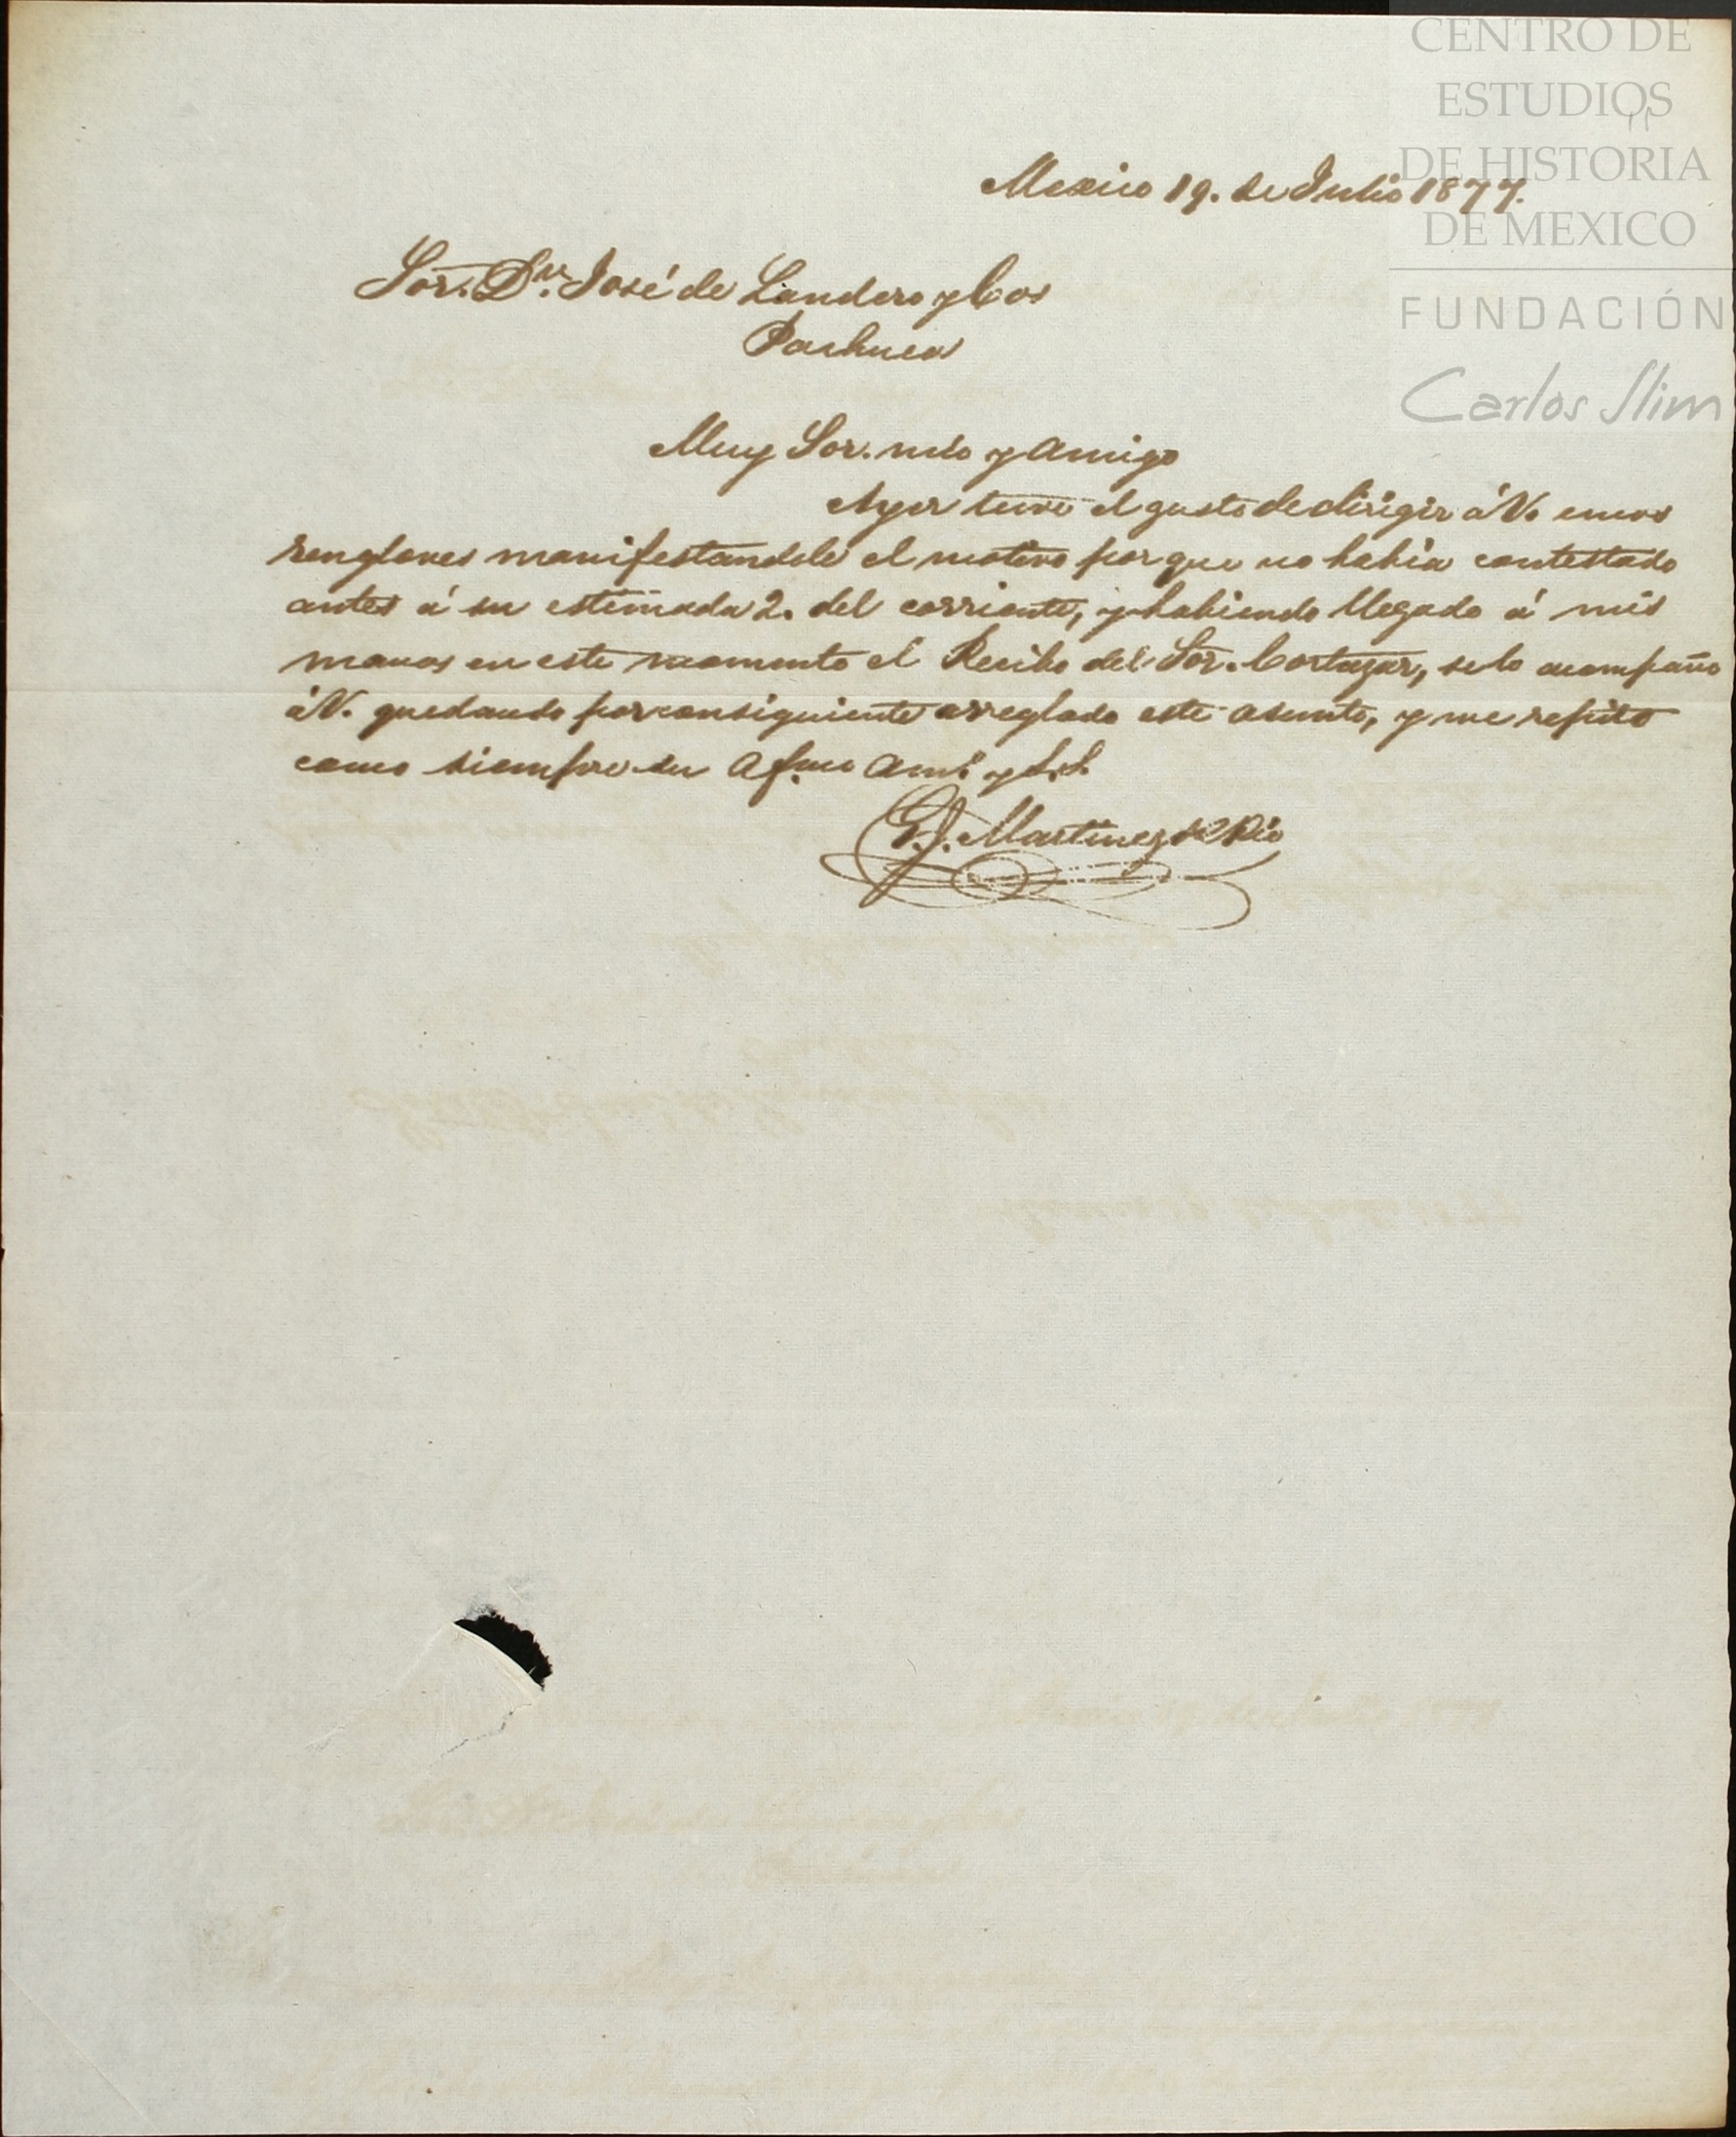 CENTRO DE
ESTUDIOS
DE HISTORIA
DE MEXICO
FUNDACIÓN
Carlos Slim
Mexico 19. de Julio 1877.
Sor. Dn. José de Landero y Cos
Pachuca
Muy Sor. mio y amigo
Ayer tuve el gusto de dirigir á V. unos
renglones manifestandole el motivo porque no habia contestado
antes á su estimada 2. del corriente, y habiendo llegado á mis
manos en este momento el Recibo del Sor. Cortazar, se lo acompaño
á V. quedando por consiguiente arreglado este asunto, y me repito
como siempre su Afmo Amo y S.S.
G. J. Martinez del Rio